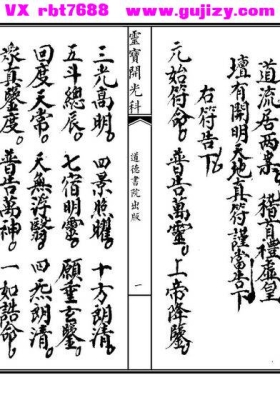 VX rbt7688 www.gujizy.com
道流居两班
壇有開明天地真符謹當告下
右符告下
元始符命。普告萬靈。上帝降鑒。
靈寶開光科
道德書院出版
一
三光高明。四景照曜。十方朗清。
五斗總辰。七宿明靈。願垂玄鑒。
回度天常。天無浮翳。四炁朗清。
衆真鑒度。普告萬神。一如誥命。